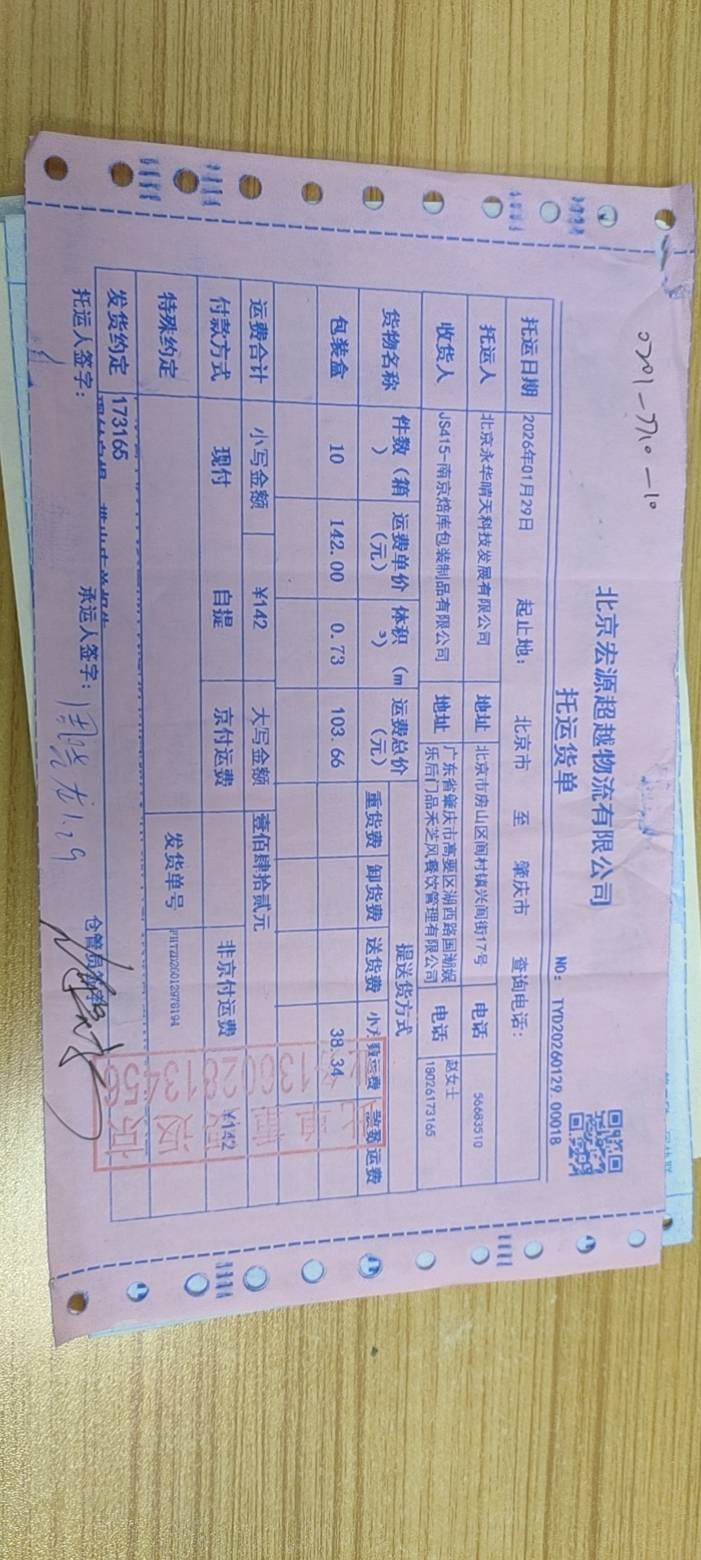 0201-7710-10
北京宏源超越物流有限公司
托运货单
NO: TYD20260129.00018
托运日期 2026年01月29日 起止地: 北京市 至 肇庆市 查询电话:
托运人 北京永华晴天科技发展有限公司 地址 北京市房山区阎村镇兴阎街17号 电话 56683510
收货人 JS415-南京焙库包装制品有限公司 地址 广东省肇庆市高要区湖西路国潮娱乐后门品禾芝风餐饮管理有限公司 电话 赵女士 18026173165
货物名称 件数(箱) 运费单价(元) 体积(m³) 运费总价(元) 提送货方式
重货费 卸货费 送货费
包装盒 10 142.00 0.73 103.66 38.34
运费合计 小写金额 ¥142 大写金额 壹佰肆拾贰元
付款方式 现付 自提 京付运费 非京付运费 ¥142
特殊约定 发货单号
发货约定 173165
托运人签字: 承运人签字: 1.29